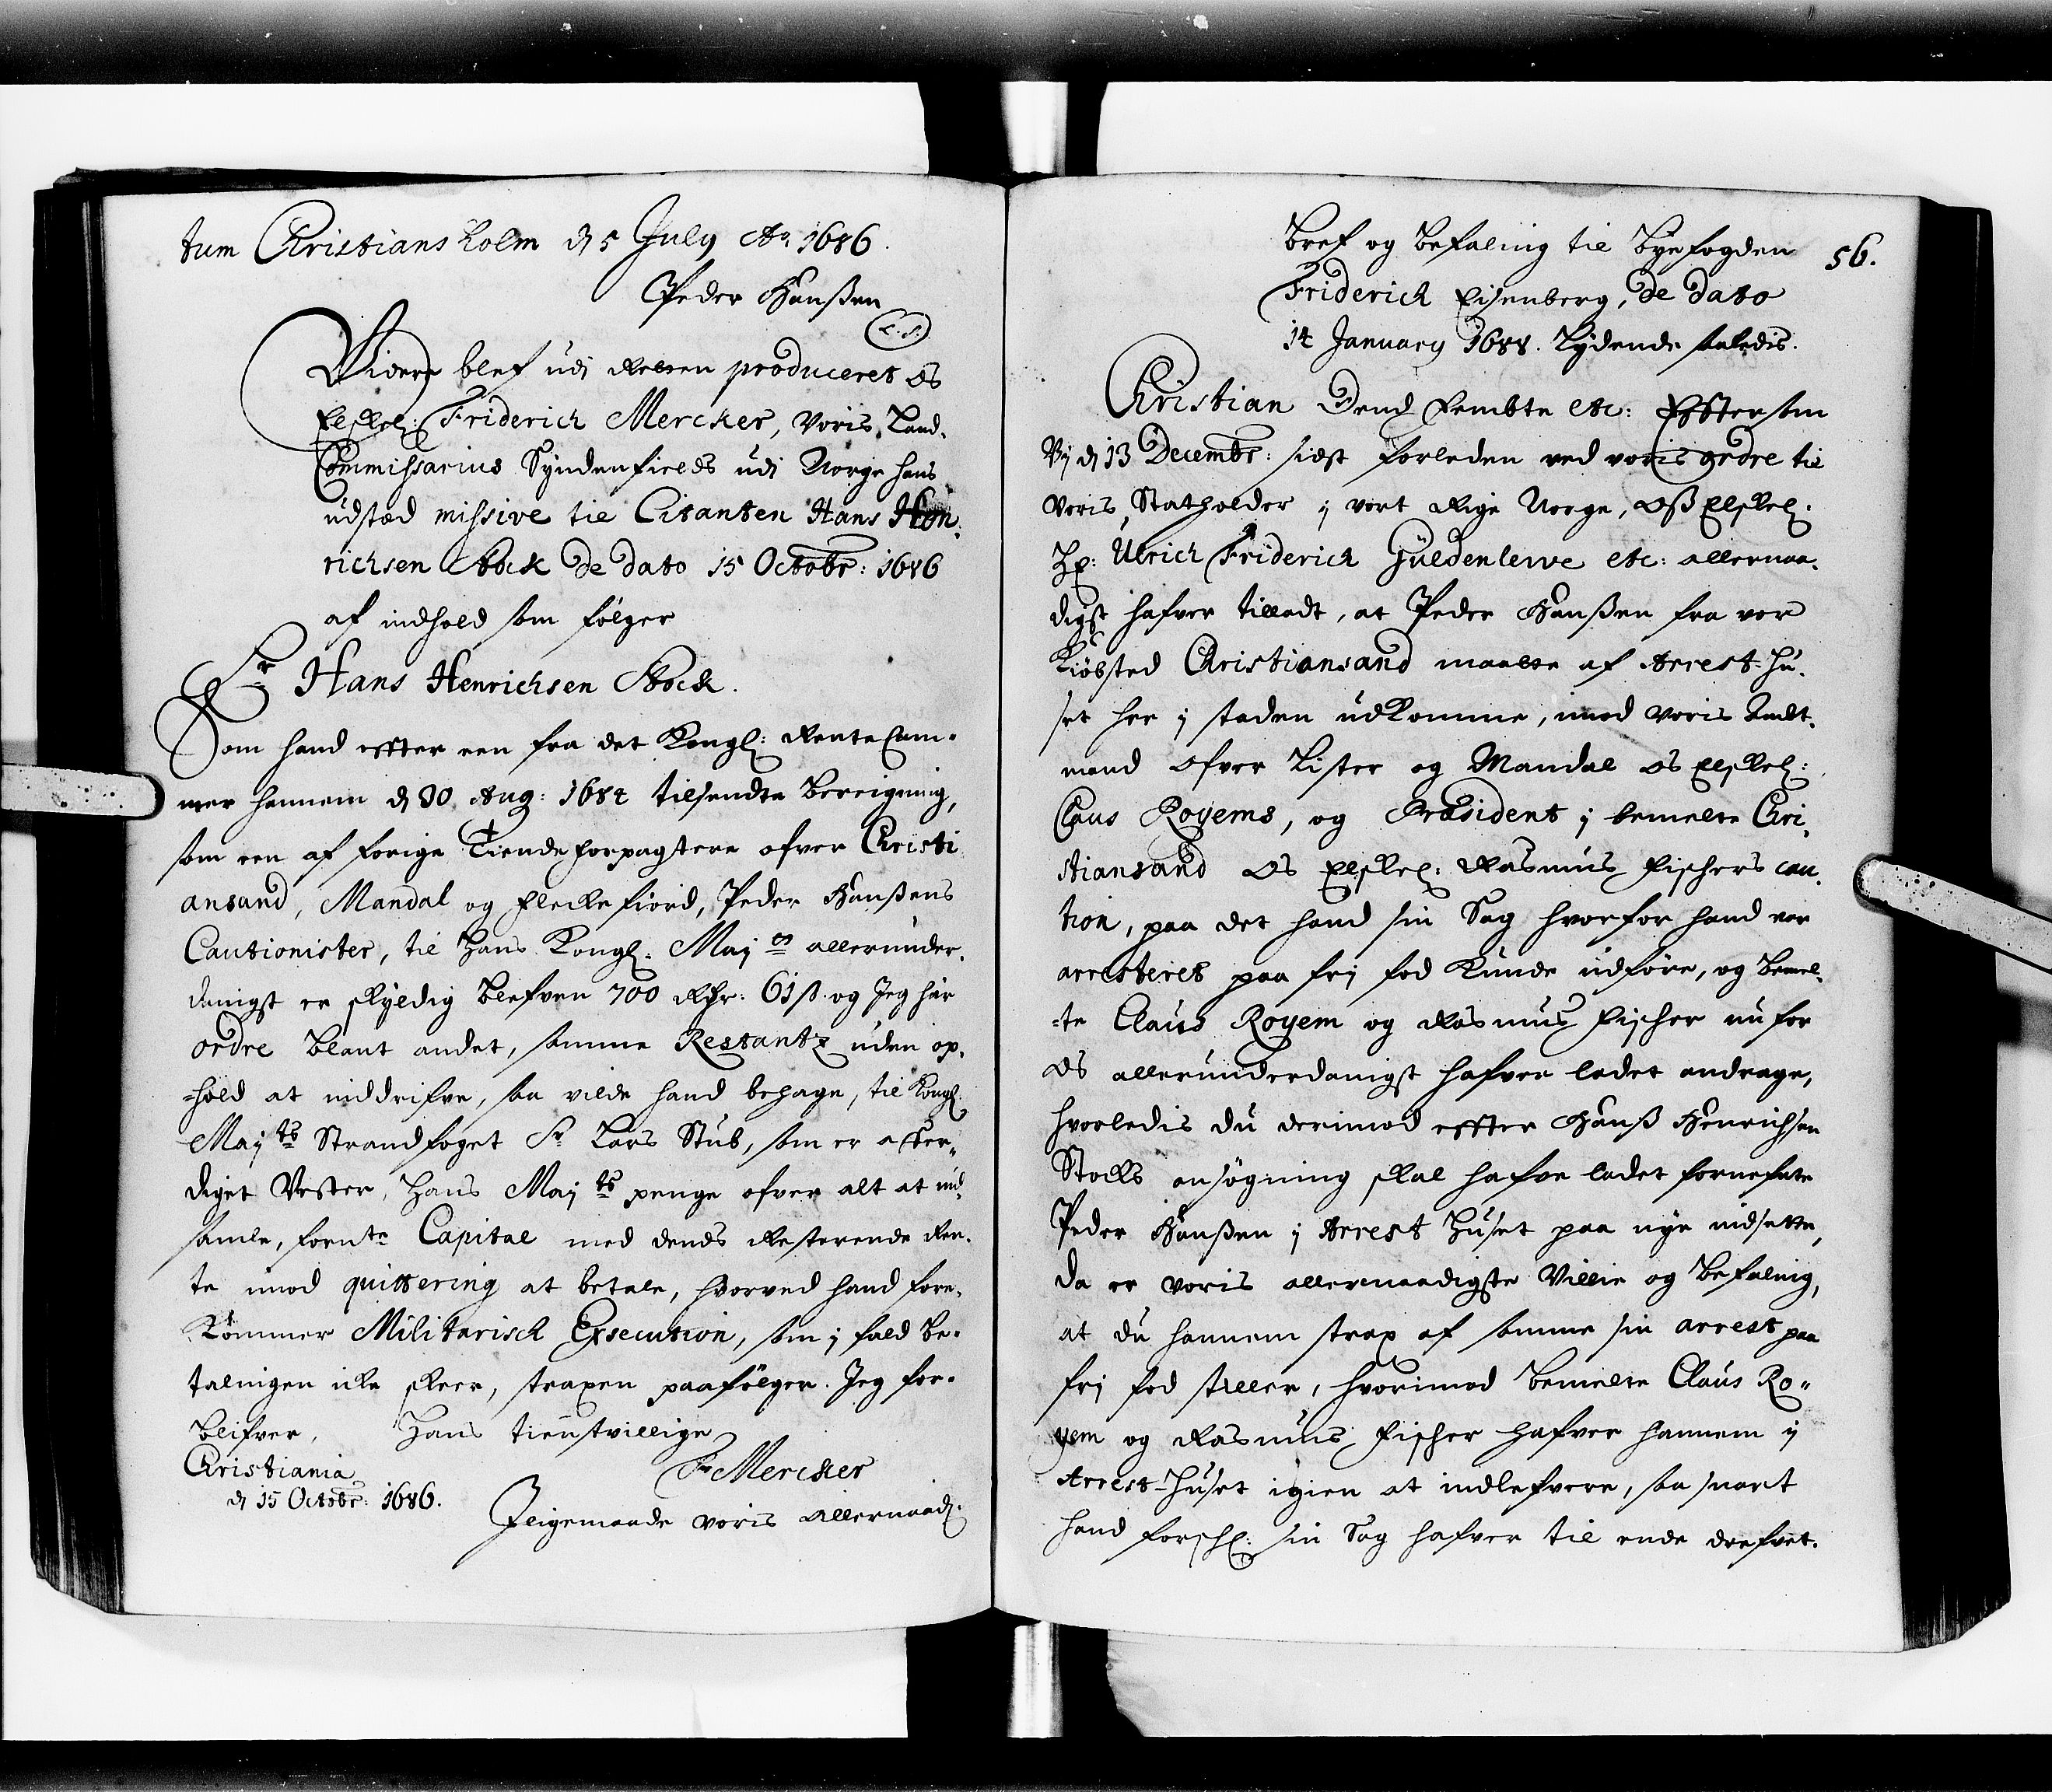 tum Christiansholm d 5 July Ao 1686.
Peder Hanßen
L. S.
Videre blef udj Retten produceret os
Elskel: Friderich Mercker, Voris Land-
Commissarius Syndenfields udj Norge hans
udstæd missive til Citanten Hans Hen-
richsen Stock de dato 15 Octobr: 1686
af indhold som følger
Sr Hans Henrichsen Stock.
Som hand effter een fra det Kongl: RenteCam-
mer hannem d 30 Aug: 1684 tilsendte Bereigning,
som een af forige Tiende forpagtere ofver Christi
ansand, Mandal og Fleckefiord, Peder Hanßens
Cautionister, til Hans Kongl. Maj allerunder-
danigst er skyldig blefven 700 Rdr: 61 ß. og Jeg har
ordre blant andet, samme Restantz uden op-
-hold at inddrifve, saa vilde hand behage, til Kongl
Maj ts Strandfoget Sr Lars Stub, som er affer-
diget Vester, Hans Maj ts penge ofver alt at ind-
samle, fornte Capital med dends Resterende Ren-
te imod quittering at betale, hvorved hand fore-
kommer Militarisch Execution, som j fald Be-
talningen icke skeer, straxen paafølger. Jeg for-
blifver, Hans tienstvillige
Christiania Fr Mercker
d 15 Octobr: 1686.
Jligemaade voris allernaad:
Bref og Befaling til Byefogden
56.
Friderich Eisenberg, de dato
14 January 1688. Lydende saaledis.
Christian Dend Fembte etc: Efftersom
Vj d 13 Decembr: sidst forleden ved voris ordre til
voris Statholder j vort Rige Norge, Oß Elskel.
Hr: Ulrich Friderich Güldenlewe etc: allernaa-
digst hafver tilladt, at Peder Hanßen fra vor
Kiøbsted Christiansand maatte af Arrest-Hu-
set her j staden udkomme, imod voris Ambt-
mand ofver Lister og Mandal os Elskel:
Claus Royems, og Præsident j bemelte Chri-
stiansand Os Elskel: Rasmus Fischers cau-
tion, paa det hand sin Sag hvorfor hand var
arresteret paa frj fod kunde udføre, og bemel-
-te Claus Royem og Rasmus Fischer nu for
os allerunderdanigst hafver ladet andrage,
hvorledis du derimod effter Hanß Henrichsen
Stocks ansøgning skal hafve ladet fornefnte
Peder Hanßen j Arrest Huset paa nye indsette,
da er voris allernaadigste Villie og Befaling,
at du hannem strax af samme sin arrest paa
frj fod stiller, hvorimod bemelte Claus Ro-
yem og Rasmus Fischer hafver hannem ij
Arrest-Huset igien at indlefvere, saa snart
hand forschr: sin Sag hafver til ende drefvet.